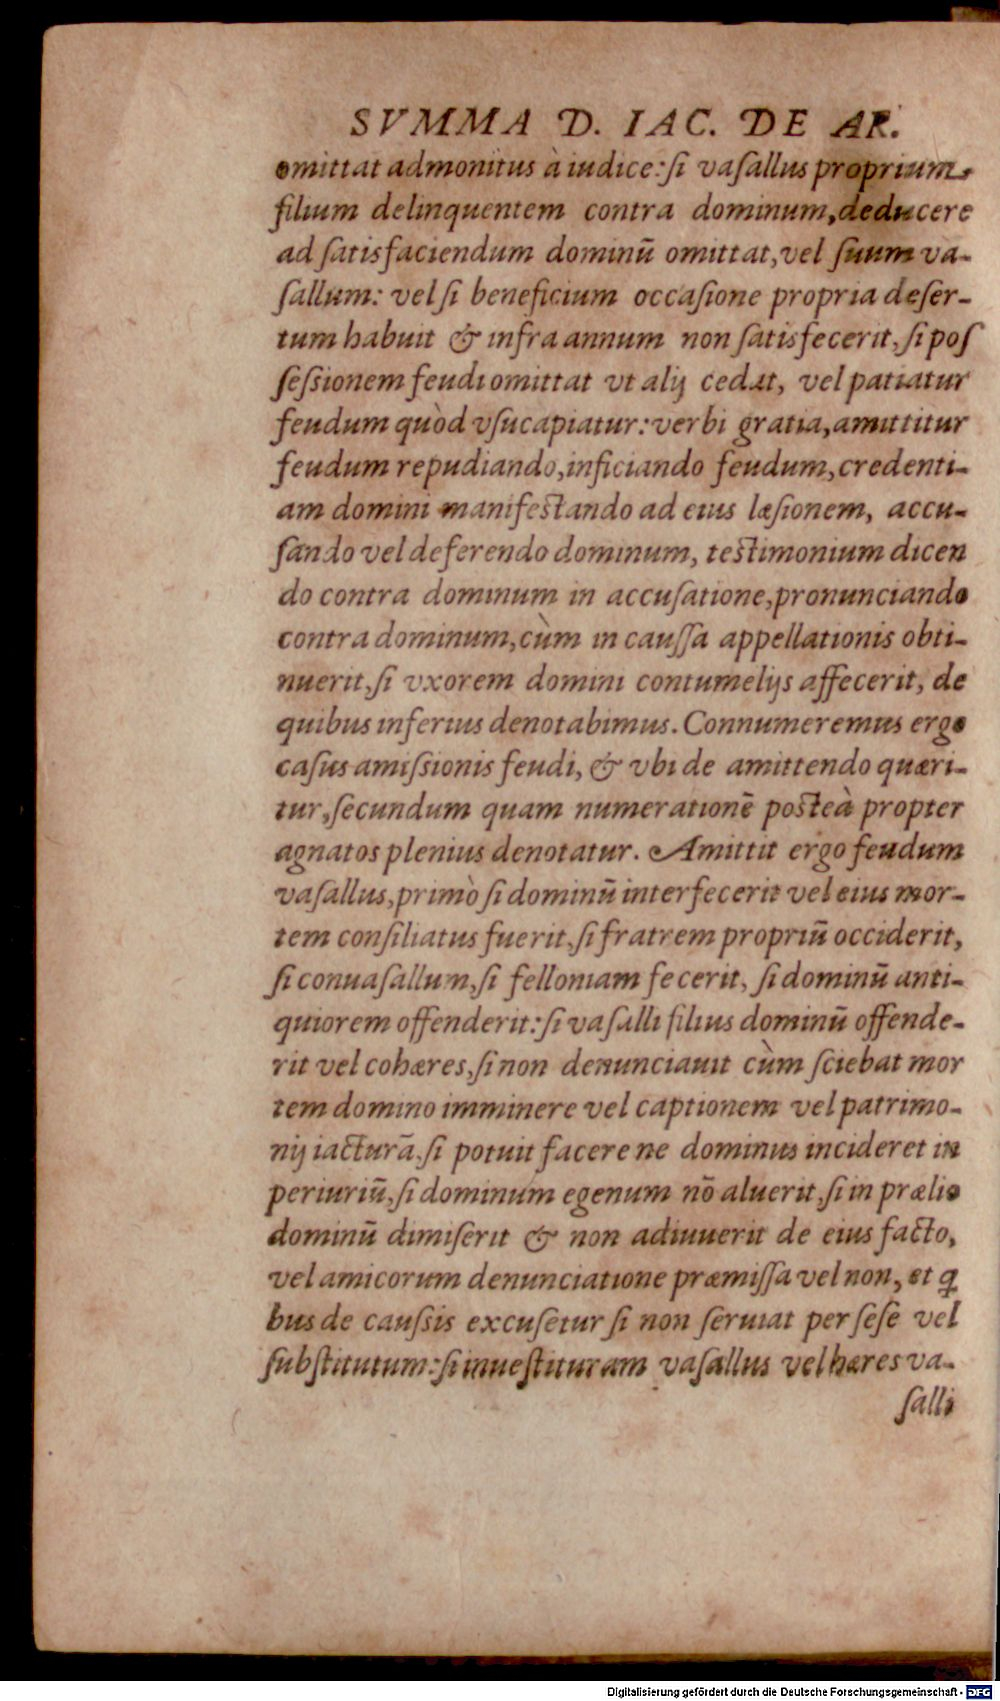 SVMMA D. IAC. DE AR.
omittat admonitus à iudice: ſi vaſallus proprium
filium delinquentem contra dominum, deducere
ad ſatisfaciendum dominū omittat, vel ſuum va-
ſallum: vel ſi beneficium occaſione propria deſer-
tum habuit & infra annum non ſatisfecerit, ſi poſ
ſeſsionem feudi omittat vt alij cedat, vel patiatur
feudum quòd vſucapiatur: verbi gratia, amittitur
feudum repudiando, inficiando feudum, credenti-
am domini manifeſtando ad eius læſionem, accu-
ſando vel deferendo dominum, teſtimonium dicen
do contra dominum in accuſatione, pronunciando
contra dominum, cùm in cauſſa appellationis obti-
nuerit, ſi vxorem domini contumelijs affecerit, de
quibus inferius denotabimus. Connumeremus ergo
caſus amiſsionis feudi, & vbi de amittendo quæri-
tur, ſecundum quam numerationē poſteà propter
agnatos plenius denotatur. Amittit ergo feudum
vaſallus, primò ſi dominū interfecerit vel eius mor-
tem conſiliatus fuerit, ſi fratrem propriū occiderit,
ſi conuaſallum, ſi felloniam fecerit, ſi dominū anti-
quiorem offenderit: ſi vaſalli filius dominū offende-
rit vel cohæres, ſi non denunciauit cùm ſciebat mor
tem domino imminere vel captionem vel patrimo-
nij iacturā, ſi potuit facere ne dominus incideret in
periuriū, ſi dominum egenum nō aluerit, ſi in prælio
dominū dimiſerit & non adiuuerit de eius facto,
vel amicorum denunciatione præmiſſa vel non, et q
bus de cauſsis excuſetur ſi non ſeruiat per ſeſe vel
ſubſtitutum: ſi inueſtituram vaſallus vel hæres va-
ſalli
Digitalisierung gefördert durch die Deutsche Forschungsgemeinschaft - DFG